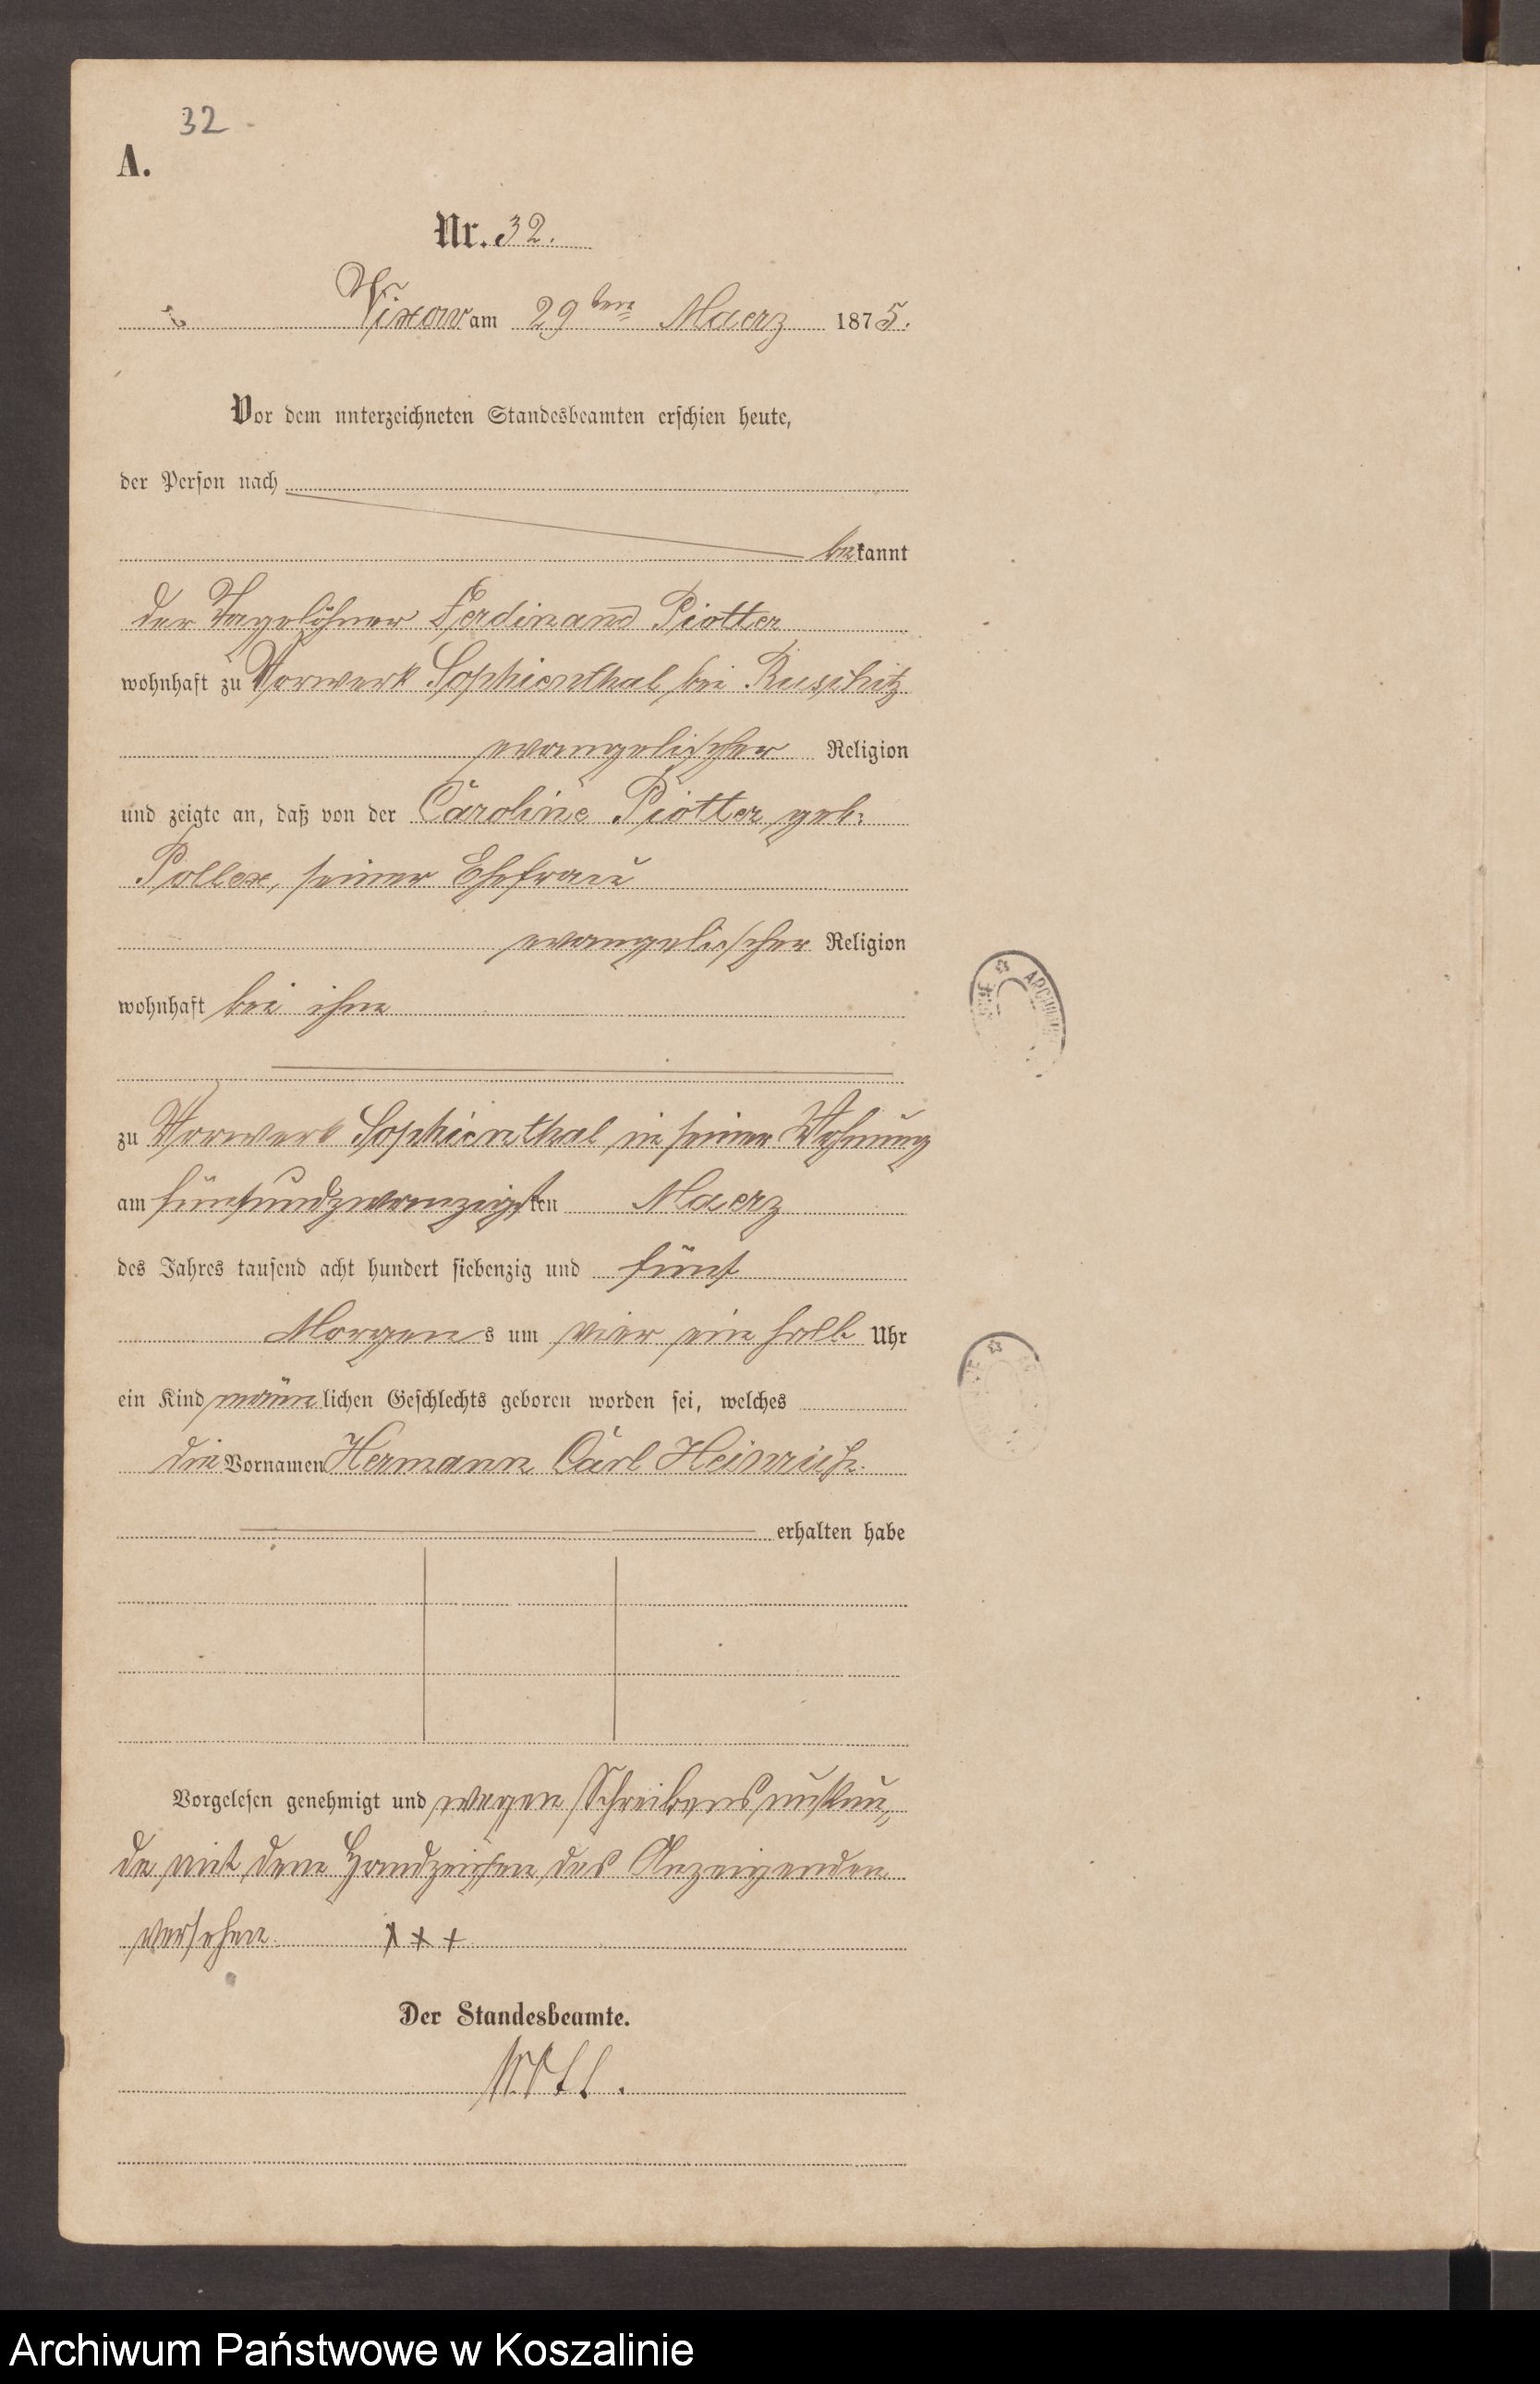 32
A.
Nr. 32.
Vixow am 29ten Maerz 1875.
Vor dem unterzeichneten Standesbeamten erschien heute,
der Person nach
bekannt
der Tagelöhner Ferdinand Piotter
wohnhaft zu Vorwerk Sophienthal bei Ruschitz
evangelischer Religion
und zeigte an, daß von der Caroline Piotter geb.
Pollex, seiner Ehefrau
evangelischer Religion
wohnhaft bei ihm
zu Vorwerk Sophienthal in seiner Wohnung
am fünfundzwanzigsten Maerz
des Jahres tausend acht hundert siebenzig und fünf
Morgens um vier ein halb Uhr
ein Kind männlichen Geschlechts geboren worden sei, welches
die Vornamen Hermann Carl Heinrich
erhalten habe
Vorgelesen genehmigt und wegen Schreibensunkun„
de mit dem Handzeichen des Anzeigenden
versehen. x x x
Der Standesbeamte.
Archiwum Państwowe w Koszalinie